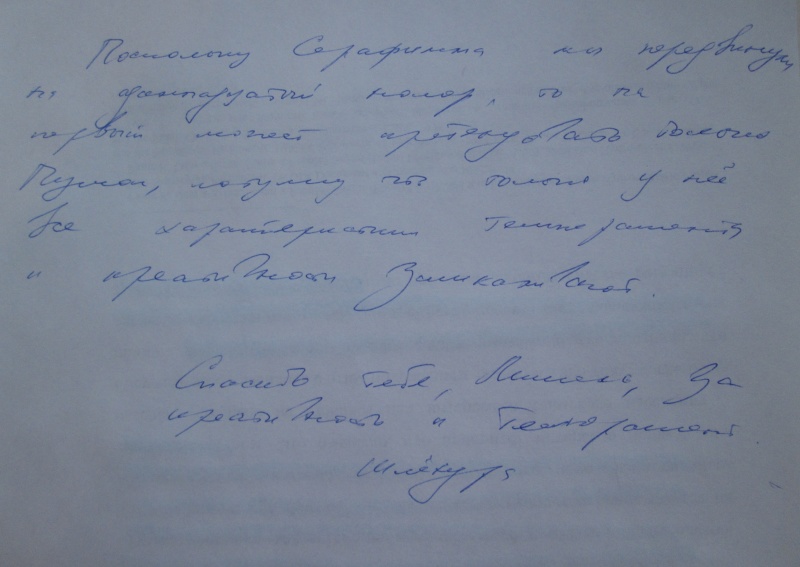 Поскольку Серафимма мы передвинули
на двенадцатый номер, то на
первый может претендовать только
потому что только у неё
все характеристики темперамента
и креативности зашкаливают.
Спасибо тебе, за
креативность и темперамент